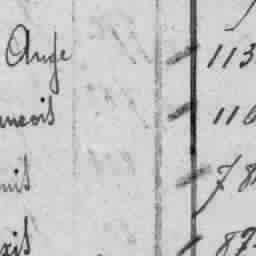 Ange 113
ancois 110
nis 78
xis 87